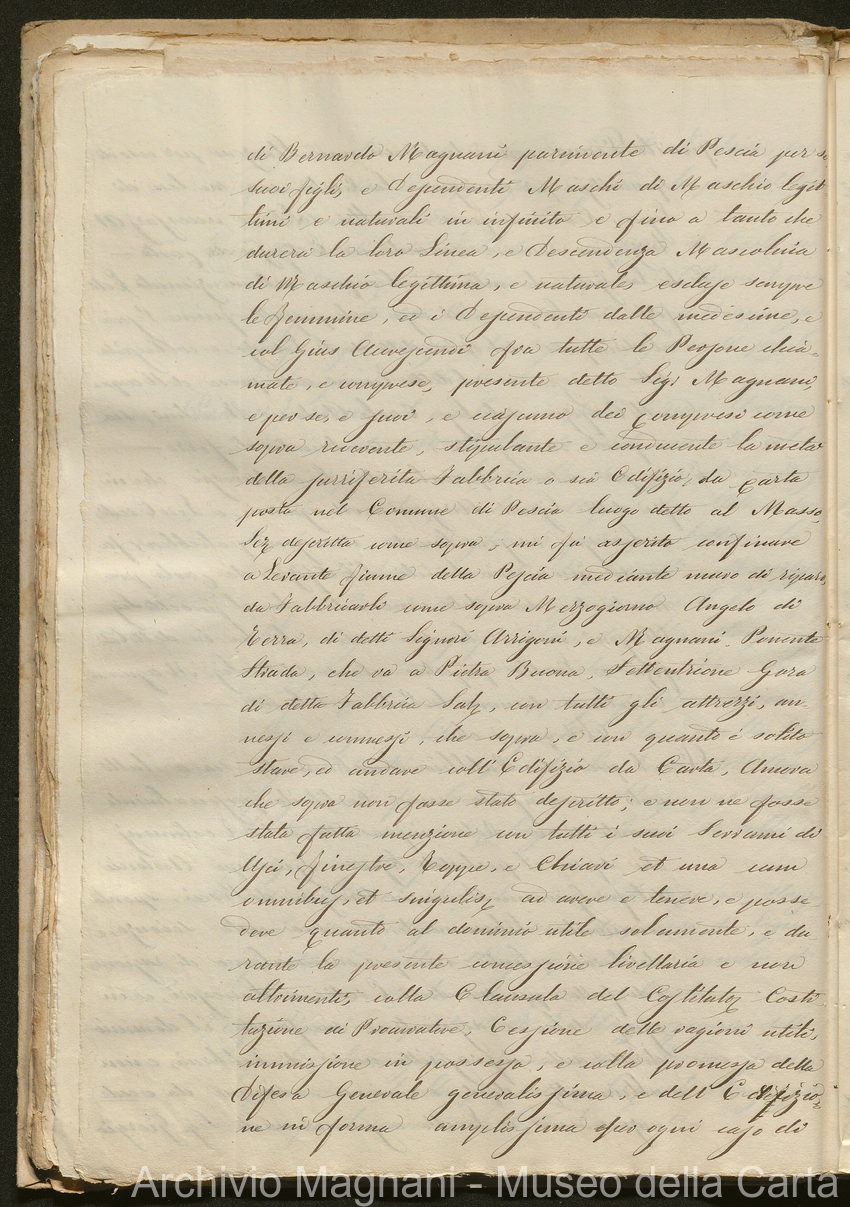 di Bernardo Magnani parimente di Pescia per se
suoi figli, e Dependenti Maschi di Maschio legit
timi e naturali in infinito e fino a tanto che
durerà la loro Linea, e Descendenza Mascolina
di Maschio legittima, e naturale, escluse sempre
le Femmine, ed i Dependenti dalle medesime, e
col Gius Accrescendi fra tutte le Persone chia=
mate, e comprese, presente detto Sigr Magnani,
e per se, e suoi, e ciascuno dei compresi come
sopra ricevente, stipulante e conducente la metà
della surriferita Fabbrica o sia Edifizio, da Carta
posta nel Comune di Pescia luogo detto al Masso,
descritta come sopra, mi fu asserito confinare
a Levante fiume della Pescia mediante muro di riparo,
da Fabbricarsi come sopra Mezzogiorno Angelo di
Terra, di detti Signori Arrigoni, e Magnani, Ponente
Strada, che va a Pietra Buona, Settentrione Gora
di detta Fabbrica Salz, con tutti gli attrezzi, an=
nessi e connessi, che sopra, e con quanto è solito
stare, ed andare coll' Edifizio da Carta, Ancora
che sopra non fosse stato descritto; e non ne fosse
stata fatta menzione con tutti i suoi Serrami di
Usci, finestre, Toppe, e Chiavi et una cum
omnibus, et singulis, ad avere e tenere, e posse=
dere quanto al dominio utile solamente, e du=
rante la presente concessione livellaria e non
altrimenti, colla Clausula del Costituto, Costi
tuzione di Procuratore, Cessione delle ragioni utili,
immissione in possesso, e colla promessa della
Difesa Generale generalissima, e dell'
ne in forma amplissima per ogni caso di
Archivio Magnani - Museo della Carta